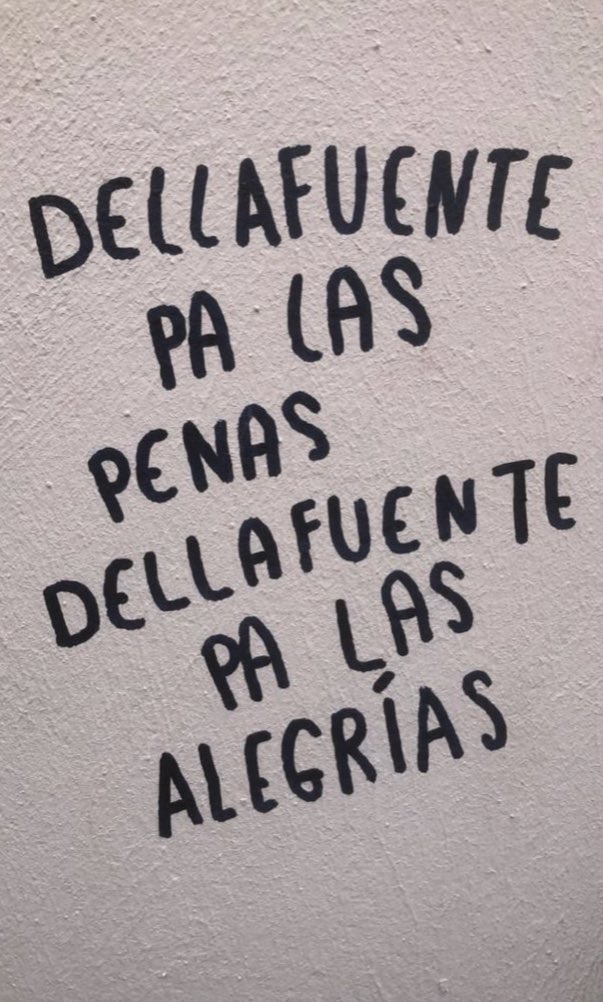 DELLAFUENTE
PA LAS
PENAS
DELLAFUENTE
PA LAS
ALEGRÍAS